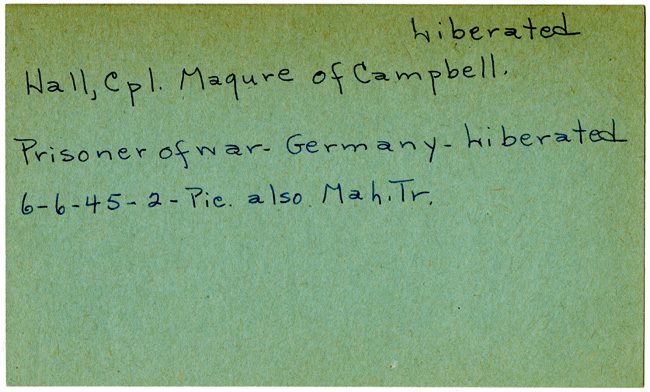 Liberated
Wall, Cpl. Maqure of Campbell.
Prisoner of war- Germany- Liberated
6-6-45-2-Pic. also Mah.Tr.